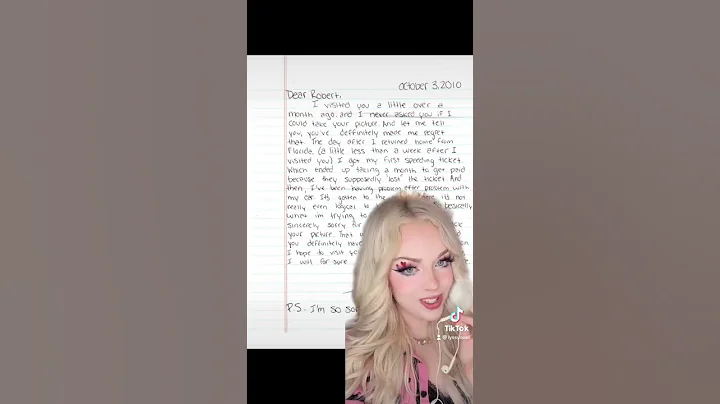 october 3, 2010
Dear Robert,
I visited you a little over a
month ago, and I never asked you if I
could take your picture. And let me tell
you, you've deffinitely made me regret
that. The day after I returned home from
Florida, (a little less than a week after I
visited you) I got my first speeding ticket.
Which ended up taking a month to get paid
because they supposedly lost the ticket. And
then, I've been having problem after problem with
my car. It's gotten to the it's not
really even logical to
what im trying to
sincerely sorry for
your picture. That
you definitely have
I hope to visit
I will for sure
P.S. I'm so
TikTok